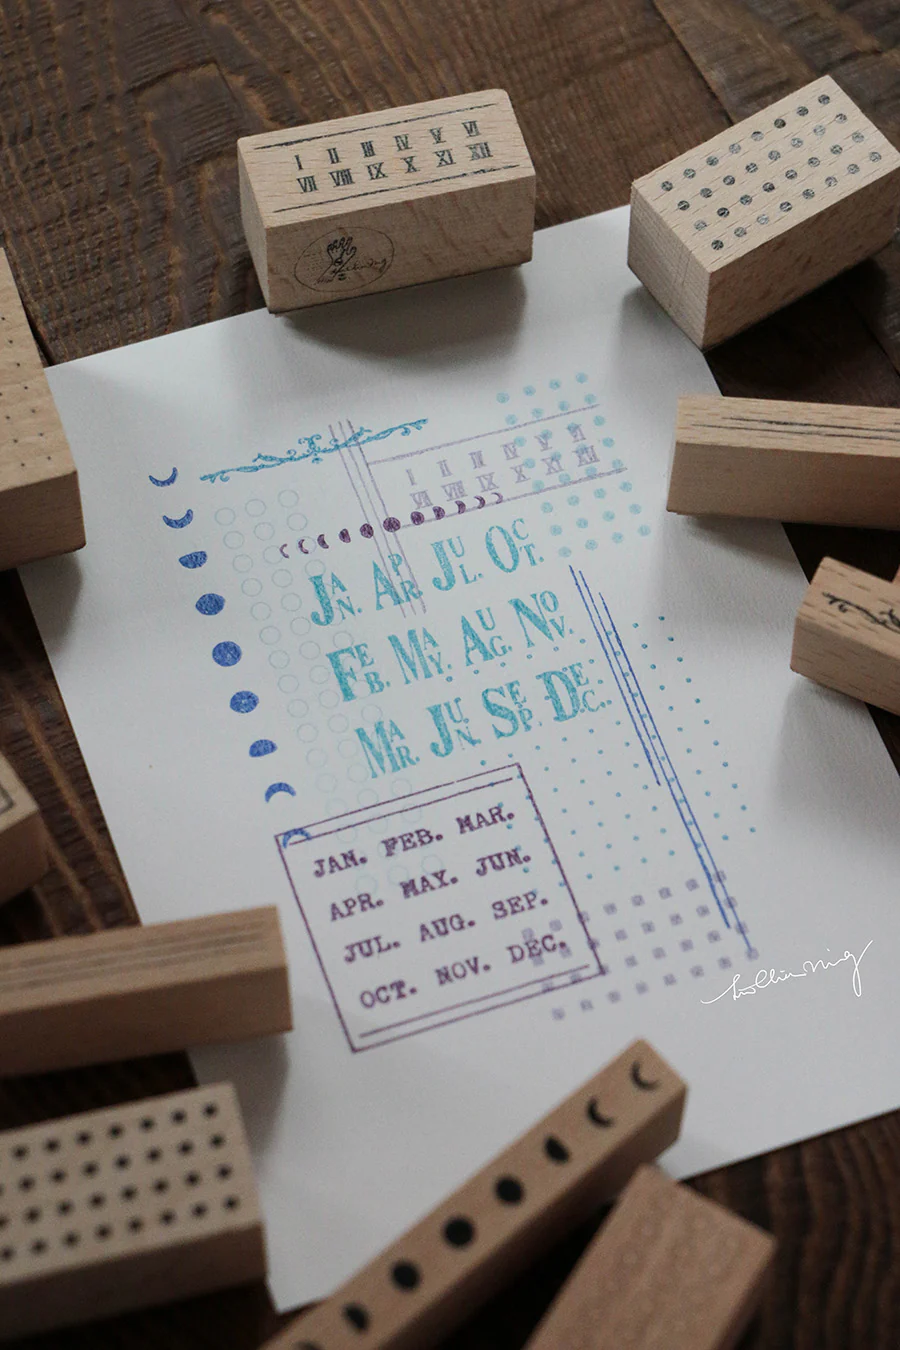 I II III IV V VI
VII VIII IX X XI XII
I II III IV V VI
VII VIII IX X XI XII
JAN. APR. JUL. OCT.
FEB. MAY. AUG. NOV.
MAR. JUN. SEP. DEC.
JAN. FEB. MAR.
APR. MAY. JUN.
JUL. AUG. SEP.
OCT. NOV. DEC.